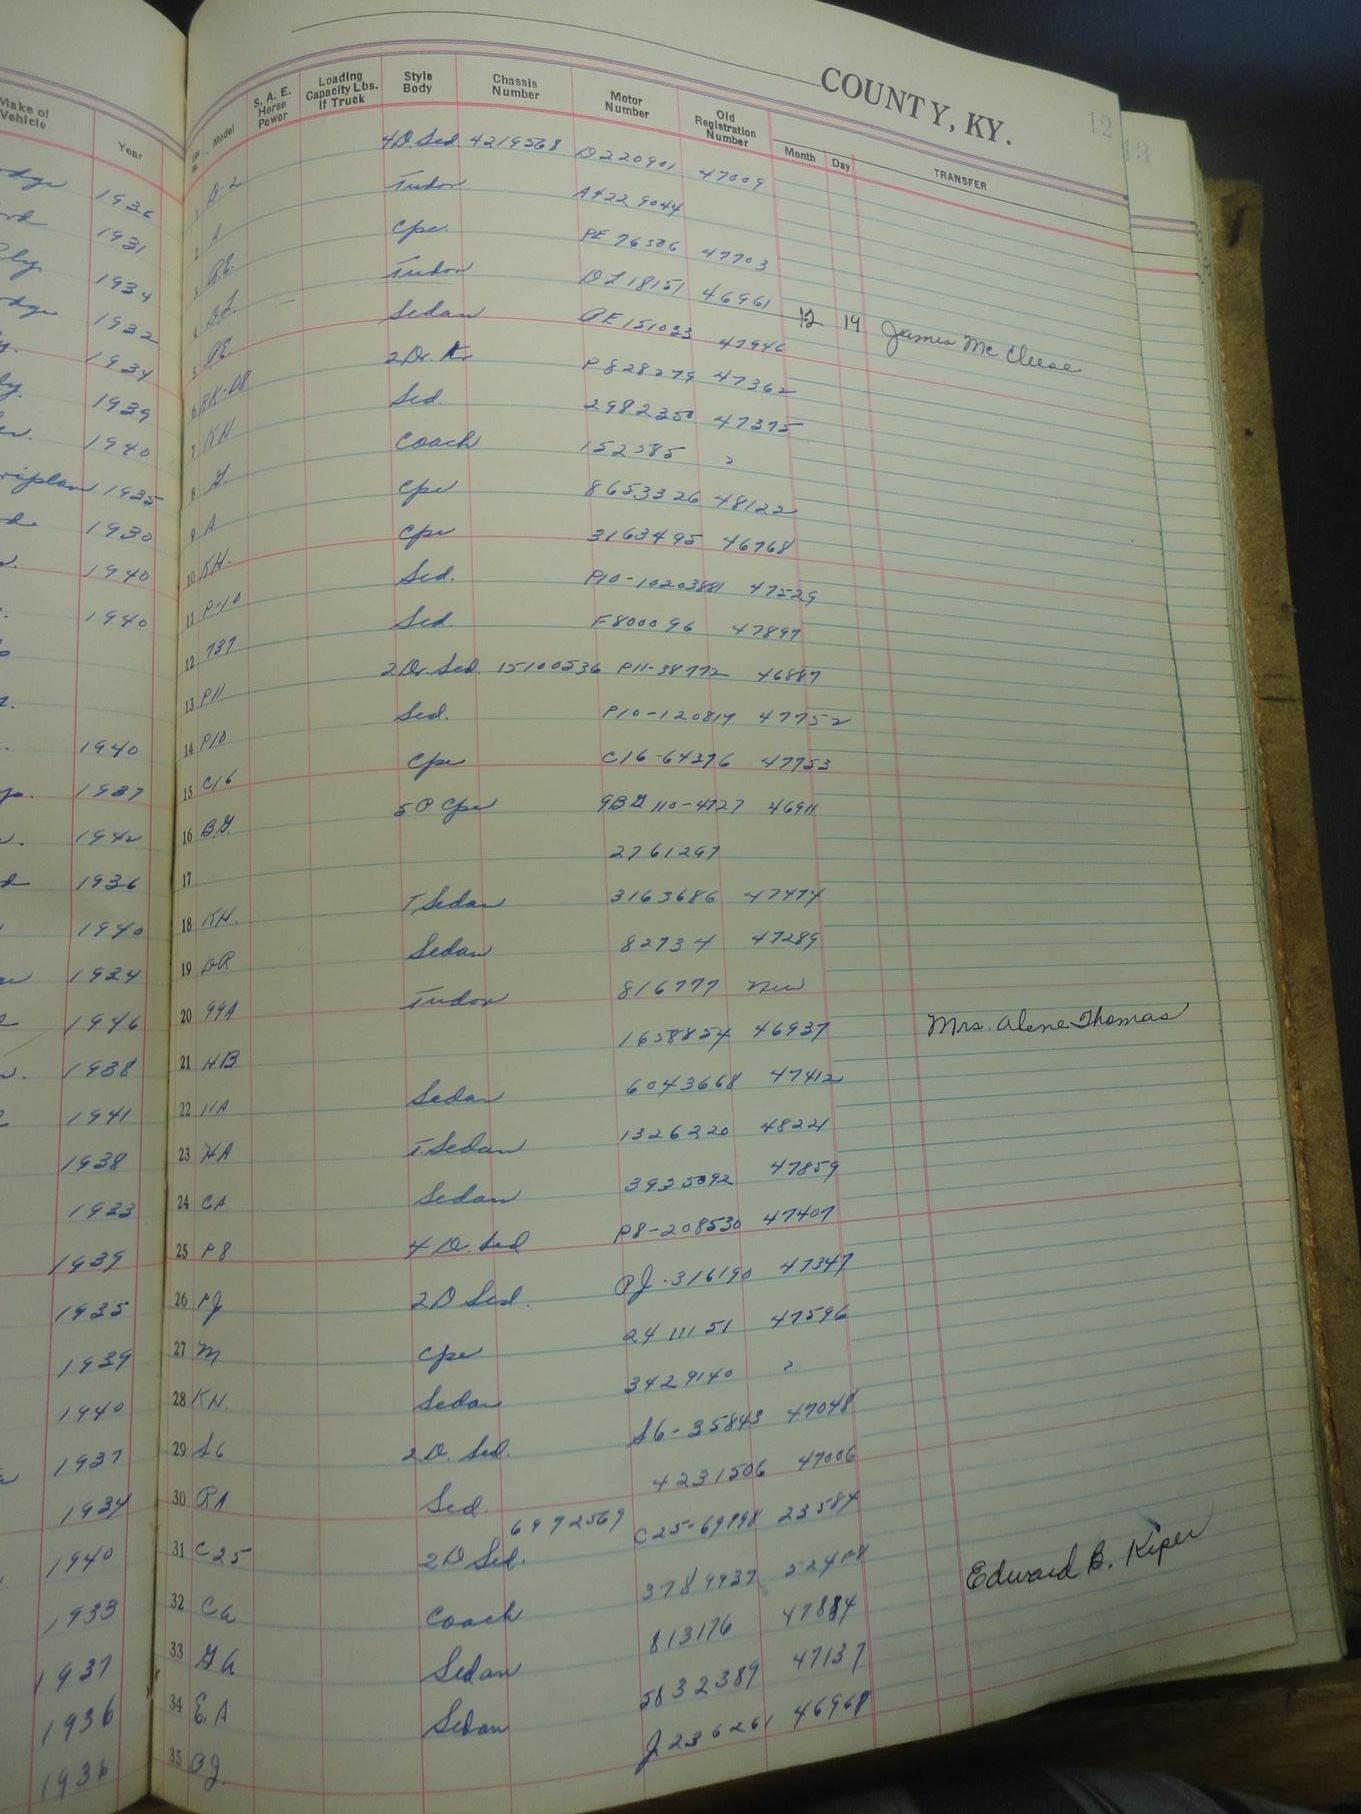 COUNTY, KY.
12
13
Make of Vehicle Year
Model S. A. E. Horse Power Loading Capacity Lbs. If Truck Style Body Chassis Number Motor Number Old Registration Number Month Day TRANSFER
1936 1 D-2 4D. Sed 4219568 D220901 47009
1931 2 A Tudor A4229044
1934 3 PE. Cpe. PE 76586 47703
1932 4 DL Tudor DL18151 46961
1934 5 PE. Sedan PE 151023 47946 12 19 James Mc Cleese
1939 6 2 Dr. P828279 47362
1940 7 KH Sed. 2982350 47375
1935 8 G. Coach 152585 ?
1930 9 A Cpe 8653326 48122
1940 10 KH. Cpe 3163495 46768
1940 11 P-10 Sed. P10-10203881 47529
12 737 Sed. F800096 47897
13 P11 2 Dr. Sed. 15100536 P11-38772 46887
1940 14 P10 Sed. P10-120817 47752
1937 15 C16 Cpe C16-64276 47753
1942 16 B.G. 5 P Cpe 9BG110-4727 46911
1936 17 2761297
1940 18 KH. T Sedan 3163686 47474
1934 19 DR Sedan 82734 47289
1946 20 99A Tudor 816777 New
1938 21 HB 1658854 46937 Mrs. Alene Thomas
1941 22 11A Sedan 6043668 47412
1938 23 HA T. Sedan 1326320 48221
1933 24 CA Sedan 3935092 47859
1939 25 P8 4 D. Sed P8-208530 47407
1935 26 PJ 2 D Sed. PJ-316190 47347
1939 27 M Cpe 2411151 47596
1940 28 KH. Sedan 3429140 ?
1937 29 S6 2 D. Sed. S6-35843 47048
1934 30 PA Sed. 4231506 47006
1940 31 C25 2 D Sed. 6992569 C25-69898 23584
1933 32 Ca Coach 3789937
1937 33 Ga Sedan 813176 47884 Edward B. Kiper
1936 34 E. A Sedan 5832389 47137
1936 35 J236261 46968